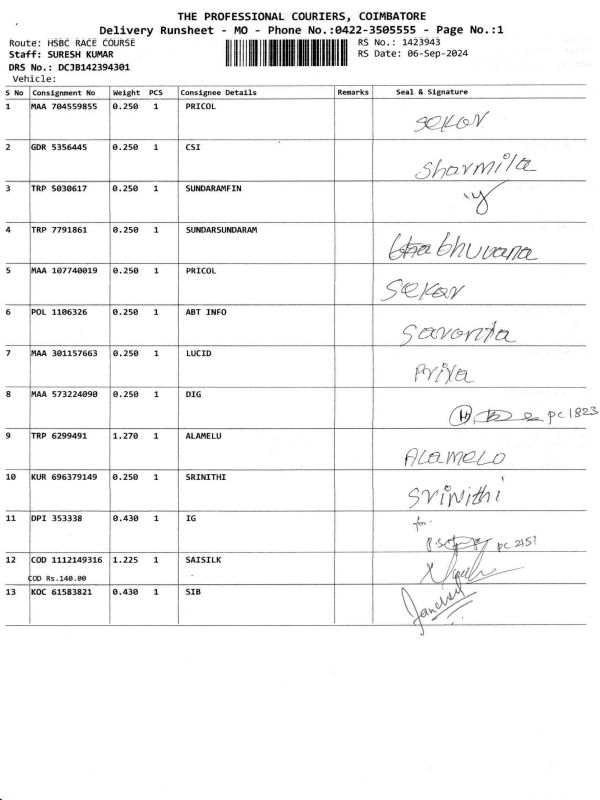 THE PROFESSIONAL COURIERS, COIMBATORE
Delivery Runsheet - MO - Phone No.:0422-3505555 - Page No.:1
Route: HSBC RACE COURSE RS No.: 1423943
Staff: SURESH KUMAR RS Date: 06-Sep-2024
DRS No.: DCJB142394301
Vehicle:
S No Consignment No Weight PCS Consignee Details Remarks Seal & Signature
1 MAA 704559855 0.250 1 PRICOL
Sekar
2 GDR 5356445 0.250 1 CSI
Sharmila
3 TRP 5030617 0.250 1 SUNDARAMFIN
4 TRP 7791861 0.250 1 SUNDARSUNDARAM
bhuvana
5 MAA 107740019 0.250 1 PRICOL
Sekar
6 POL 1106326 0.250 1 ABT INFO
7 MAA 301157663 0.250 1 LUCID
Priya
8 MAA 573224090 0.250 1 DIG
pc 1823
9 TRP 6299491 1.270 1 ALAMELU
ALAMELO
10 KUR 696379149 0.250 1 SRINITHI
Srinithi
11 DPI 353338 0.430 1 IG
for
pc 2151
12 COD 1112149316 1.225 1 SAISILK
COD Rs.140.00
13 KOC 61583821 0.430 1 SIB